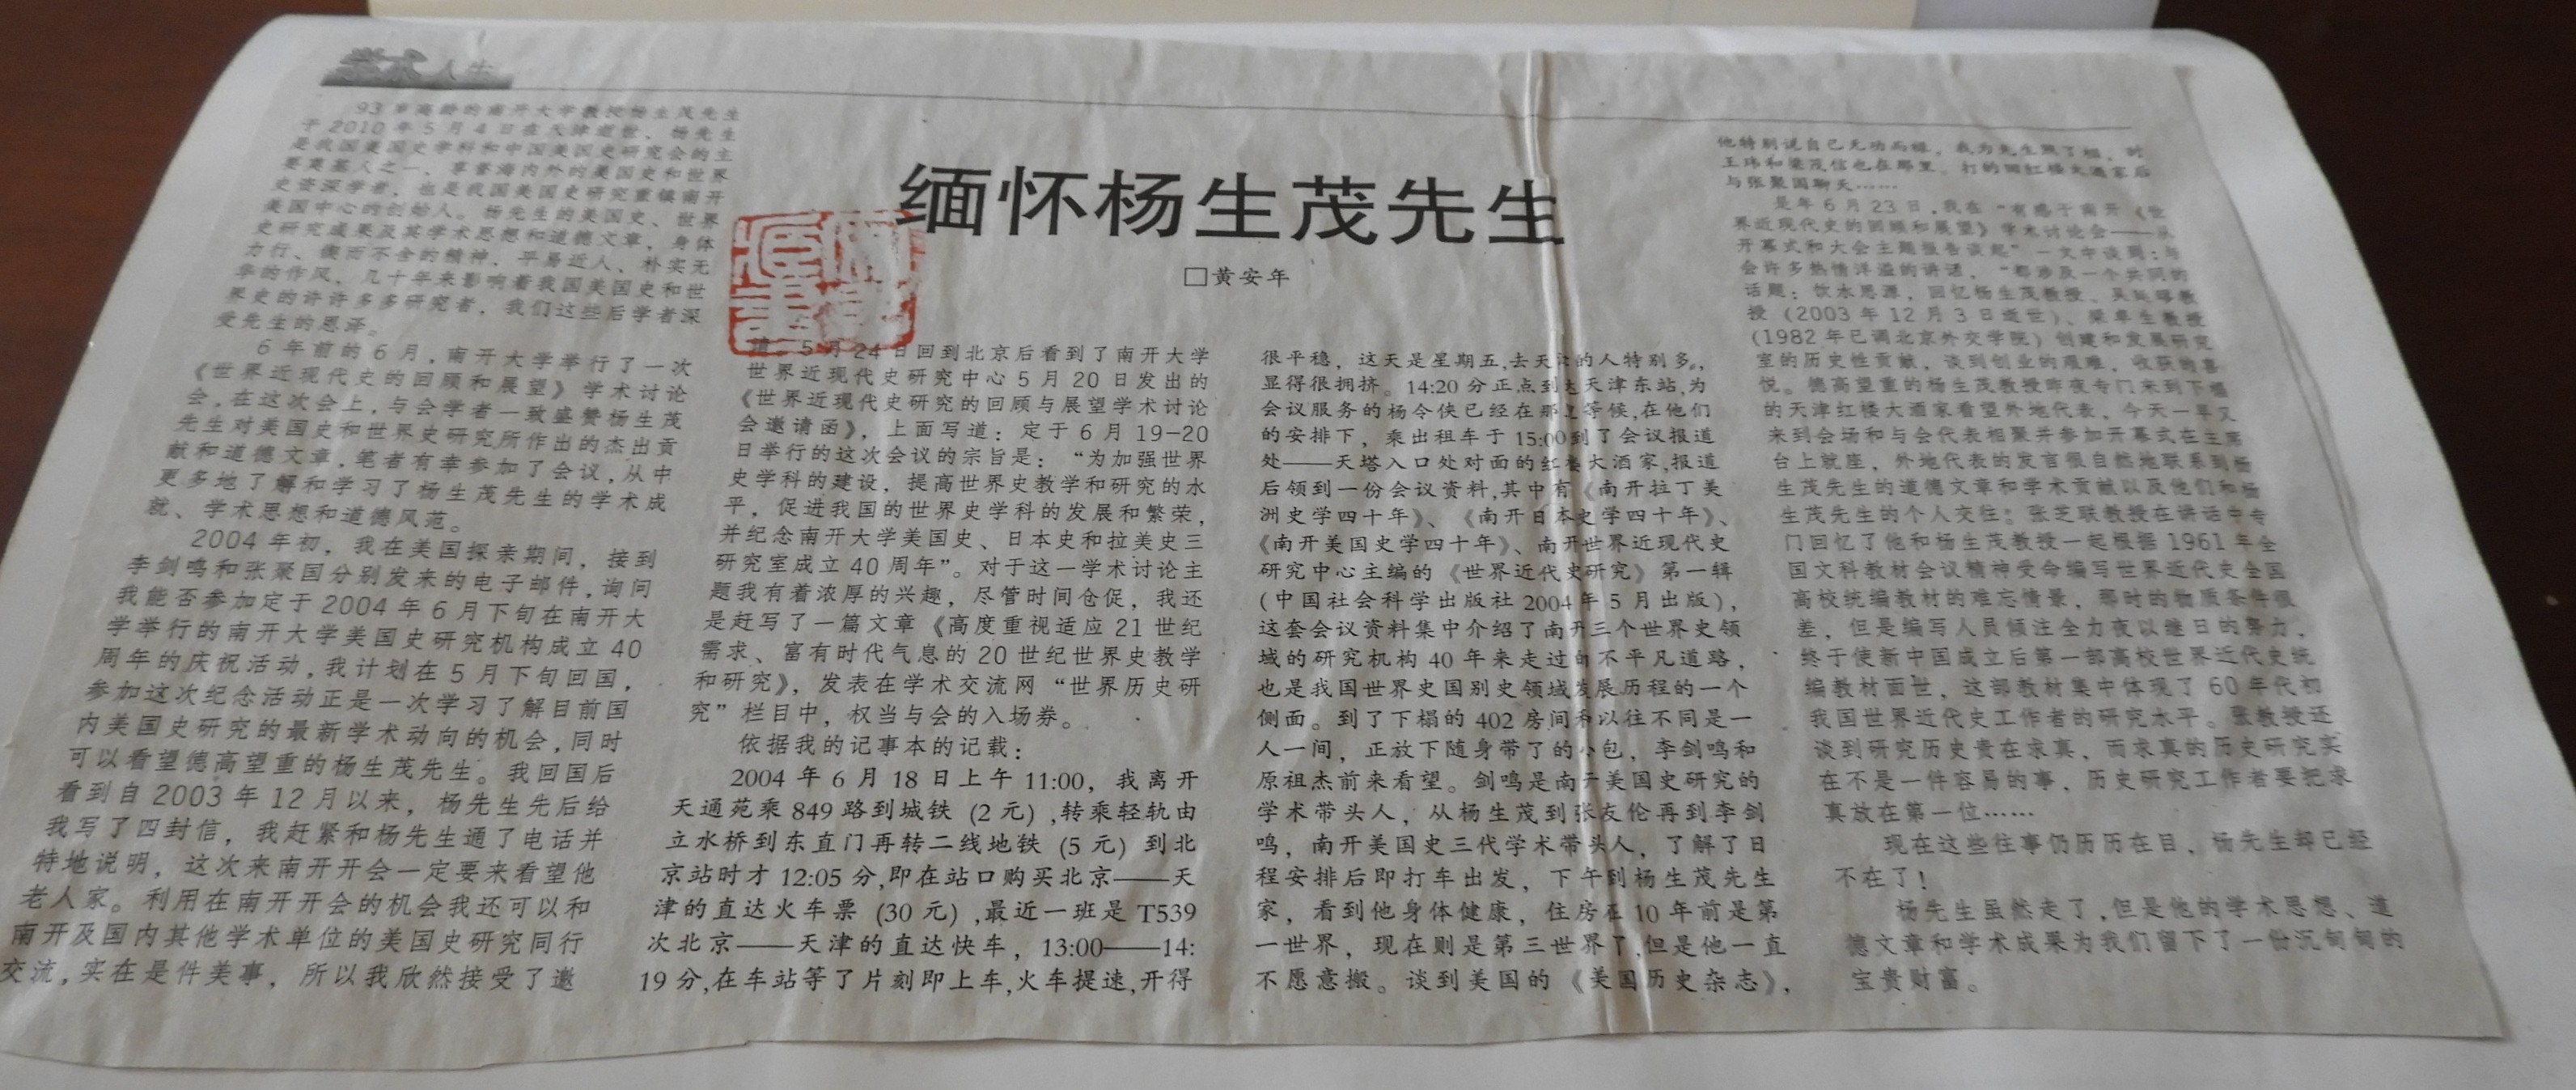 学术人生
缅怀杨生茂先生
□黄安年
93 岁高龄的南开大学教授杨生茂先生
于 2010 年 5 月 4 日在天津逝世。杨先生
是我国美国史学科和中国美国史研究会的主
要奠基人之一，享誉海内外的美国史和世界
史资深学者，也是我国美国史研究重镇南开
美国中心的创始人。杨先生的美国史、世界
史研究成果及其学术思想和道德文章，身体
力行、锲而不舍的精神，平易近人、朴实无
华的作风，几十年来影响着我国美国史和世
界史的许许多多研究者，我们这些后学者深
受先生的恩泽。
6 年前的 6 月，南开大学举行了一次
《世界近现代史的回顾和展望》学术讨论
会，在这次会上，与会学者一致盛赞杨生茂
先生对美国史和世界史研究所作出的杰出贡
献和道德文章，笔者有幸参加了会议，从中
更多地了解和学习了杨生茂先生的学术成
就、学术思想和道德风范。
2004 年初，我在美国探亲期间，接到
李剑鸣和张聚国分别发来的电子邮件，询问
我能否参加定于 2004 年 6 月下旬在南开大
学举行的南开大学美国史研究机构成立 40
周年的庆祝活动，我计划在 5 月下旬回国，
参加这次纪念活动正是一次学习了解目前国
内美国史研究的最新学术动向的机会，同时
可以看望德高望重的杨生茂先生。我回国后
看到自 2003 年 12 月以来，杨先生先后给
我写了四封信，我赶紧和杨先生通了电话并
特地说明，这次来南开开会一定要来看望他
老人家。利用在南开开会的机会我还可以和
南开及国内其他学术单位的美国史研究同行
交流，实在是件美事，所以我欣然接受了邀
请。5 月 24 日回到北京后看到了南开大学
世界近现代史研究中心 5 月 20 日发出的
《世界近现代史研究的回顾与展望学术讨论
会邀请函》，上面写道：定于 6 月 19-20
日举行的这次会议的宗旨是：“为加强世界
史学科的建设，提高世界史教学和研究的水
平，促进我国的世界史学科的发展和繁荣，
并纪念南开大学美国史、日本史和拉美史三
研究室成立 40 周年”。对于这一学术讨论主
题我有着浓厚的兴趣，尽管时间仓促，我还
是赶写了一篇文章《高度重视适应 21 世纪
需求、富有时代气息的 20 世纪世界史教学
和研究》，发表在学术交流网“世界历史研
究”栏目中，权当与会的入场券。
依据我的记事本的记载：
2004 年 6 月 18 日上午 11:00，我离开
天通苑乘 849 路到城铁 (2 元) ,转乘轻轨由
立水桥到东直门再转二线地铁 (5 元) 到北
京站时才 12:05 分,即在站口购买北京——天
津的直达火车票 (30 元) ,最近一班是 T539
次北京——天津的直达快车，13:00——14:
19 分,在车站等了片刻即上车,火车提速,开得
很平稳，这天是星期五,去天津的人特别多,
显得很拥挤。14:20 分正点到达天津东站,为
会议服务的杨令侠已经在那里等候,在他们
的安排下，乘出租车于 15:00到了会议报道
处——天塔入口处对面的红楼大酒家,报道
后领到一份会议资料,其中有《南开拉丁美
洲史学四十年》、《南开日本史学四十年》、
《南开美国史学四十年》、南开世界近现代史
研究中心主编的《世界近代史研究》第一辑
(中国社会科学出版社 2004 年 5 月出版)，
这套会议资料集中介绍了南开三个世界史领
域的研究机构 40 年来走过的不平凡道路，
也是我国世界史国别史领域发展历程的一个
侧面。到了下榻的 402 房间和以往不同是一
人一间，正放下随身带了的小包，李剑鸣和
原祖杰前来看望。剑鸣是南开美国史研究的
学术带头人，从杨生茂到张友伦再到李剑
鸣，南开美国史三代学术带头人，了解了日
程安排后即打车出发，下午到杨生茂先生
家，看到他身体健康，住房在 10 年前是第
一世界，现在则是第三世界了,但是他一直
不愿意搬。谈到美国的《美国历史杂志》，
他特别说自己无功而禄，我为先生照了相，时
王玮和梁茂信也在那里。打的回红楼大酒家后
与张聚国聊天……
是年 6 月 23 日，我在“有感于南开《世
界近现代史的回顾和展望》学术讨论会——从
开幕式和大会主题报告谈起”一文中谈到：与
会许多热情洋溢的讲话，“都涉及一个共同的
话题：饮水思源，回忆杨生茂教授、吴廷璆教
授 (2003 年 12 月 3 日逝世)、梁卓生教授
(1982 年已调北京外交学院) 创建和发展研究
室的历史性贡献，谈到创业的艰难，收获的喜
悦。德高望重的杨生茂教授昨夜专门来到下榻
的天津红楼大酒家看望外地代表，今天一早又
来到会场和与会代表相聚并参加开幕式在主席
台上就座，外地代表的发言很自然地联系到杨
生茂先生的道德文章和学术贡献以及他们和杨
生茂先生的个人交往；张芝联教授在讲话中专
门回忆了他和杨生茂教授一起根据 1961 年全
国文科教材会议精神受命编写世界近代史全国
高校统编教材的难忘情景，那时的物质条件很
差，但是编写人员倾注全力夜以继日的努力，
终于使新中国成立后第一部高校世界近代史统
编教材面世，这部教材集中体现了 60 年代初
我国世界近代史工作者的研究水平。张教授还
谈到研究历史贵在求真，而求真的历史研究实
在不是一件容易的事，历史研究工作者要把求
真放在第一位……
现在这些往事仍历历在目，杨先生却已经
不在了！
杨先生虽然走了，但是他的学术思想、道
德文章和学术成果为我们留下了一份沉甸甸的
宝贵财富。